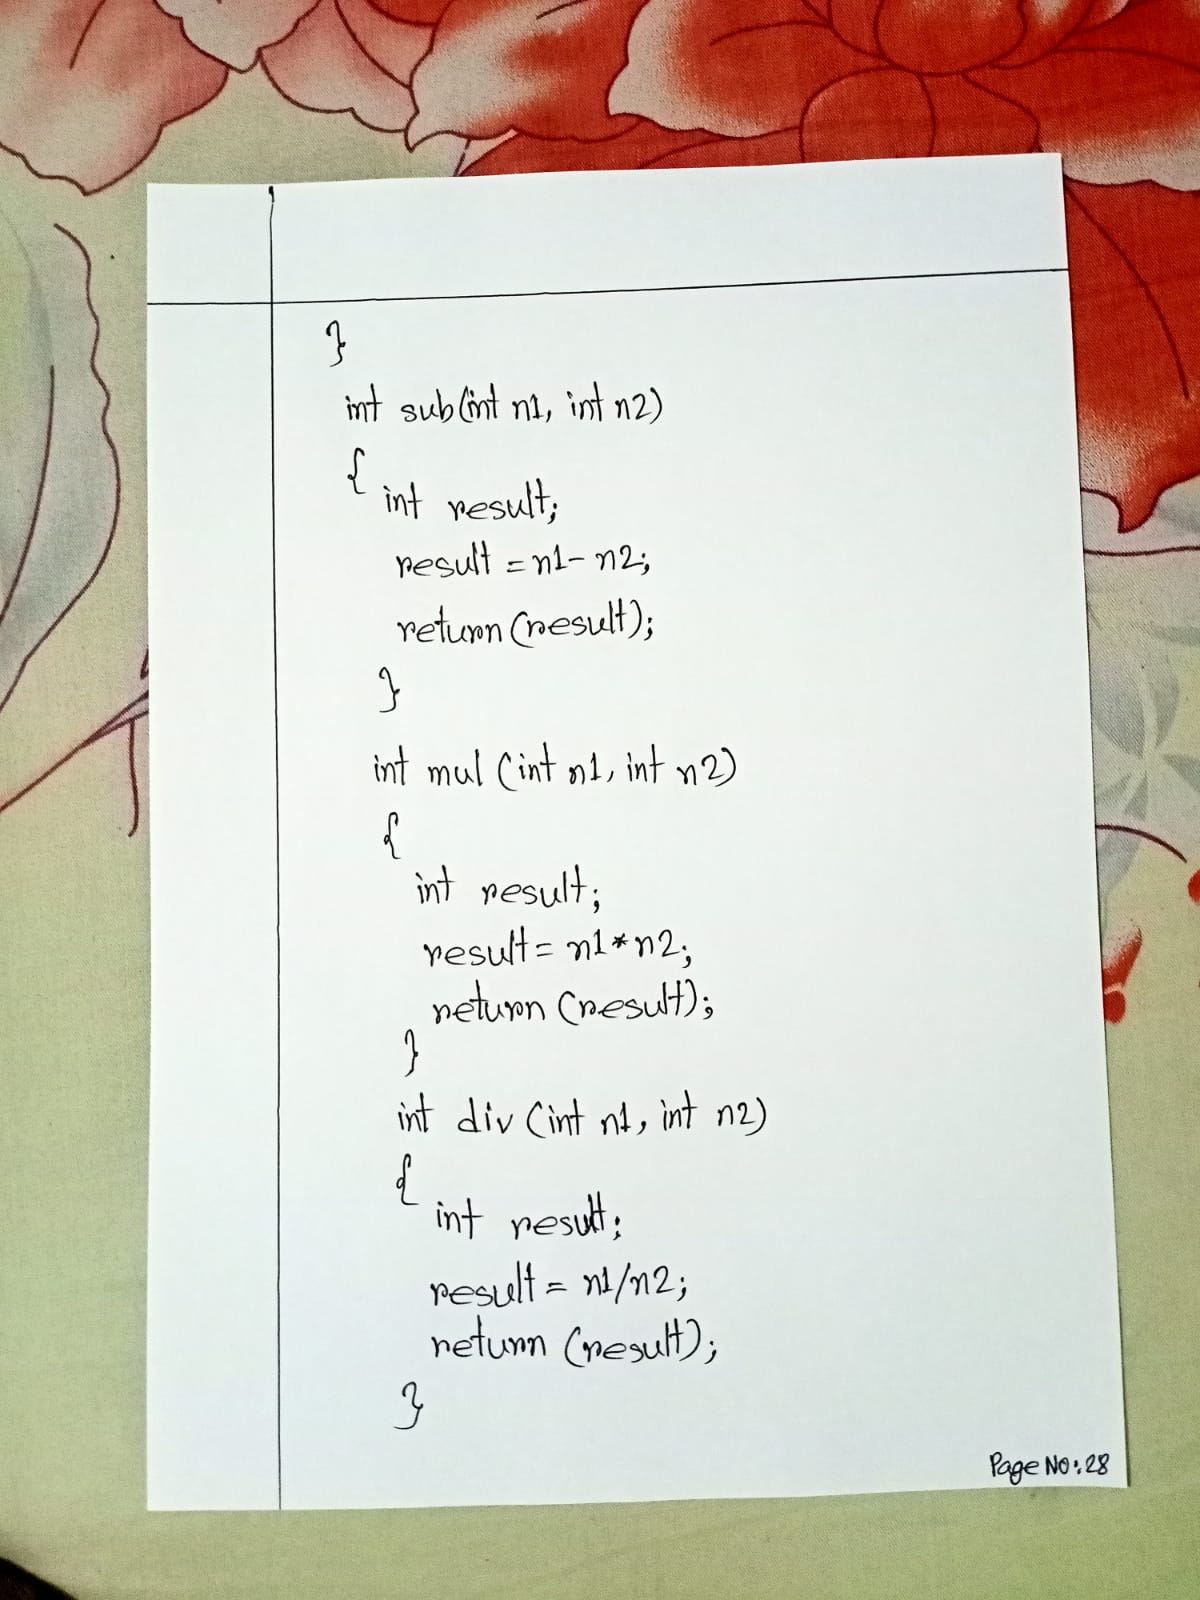 }
int sub(int n1, int n2)
{
int result;
result = n1- n2;
return (result);
}
int mul (int n1, int n2)
{
int result;
result = n1*n2;
return (result);
}
int div (int n1, int n2)
{
int result;
result = n1/n2;
return (result);
}
Page NO:28